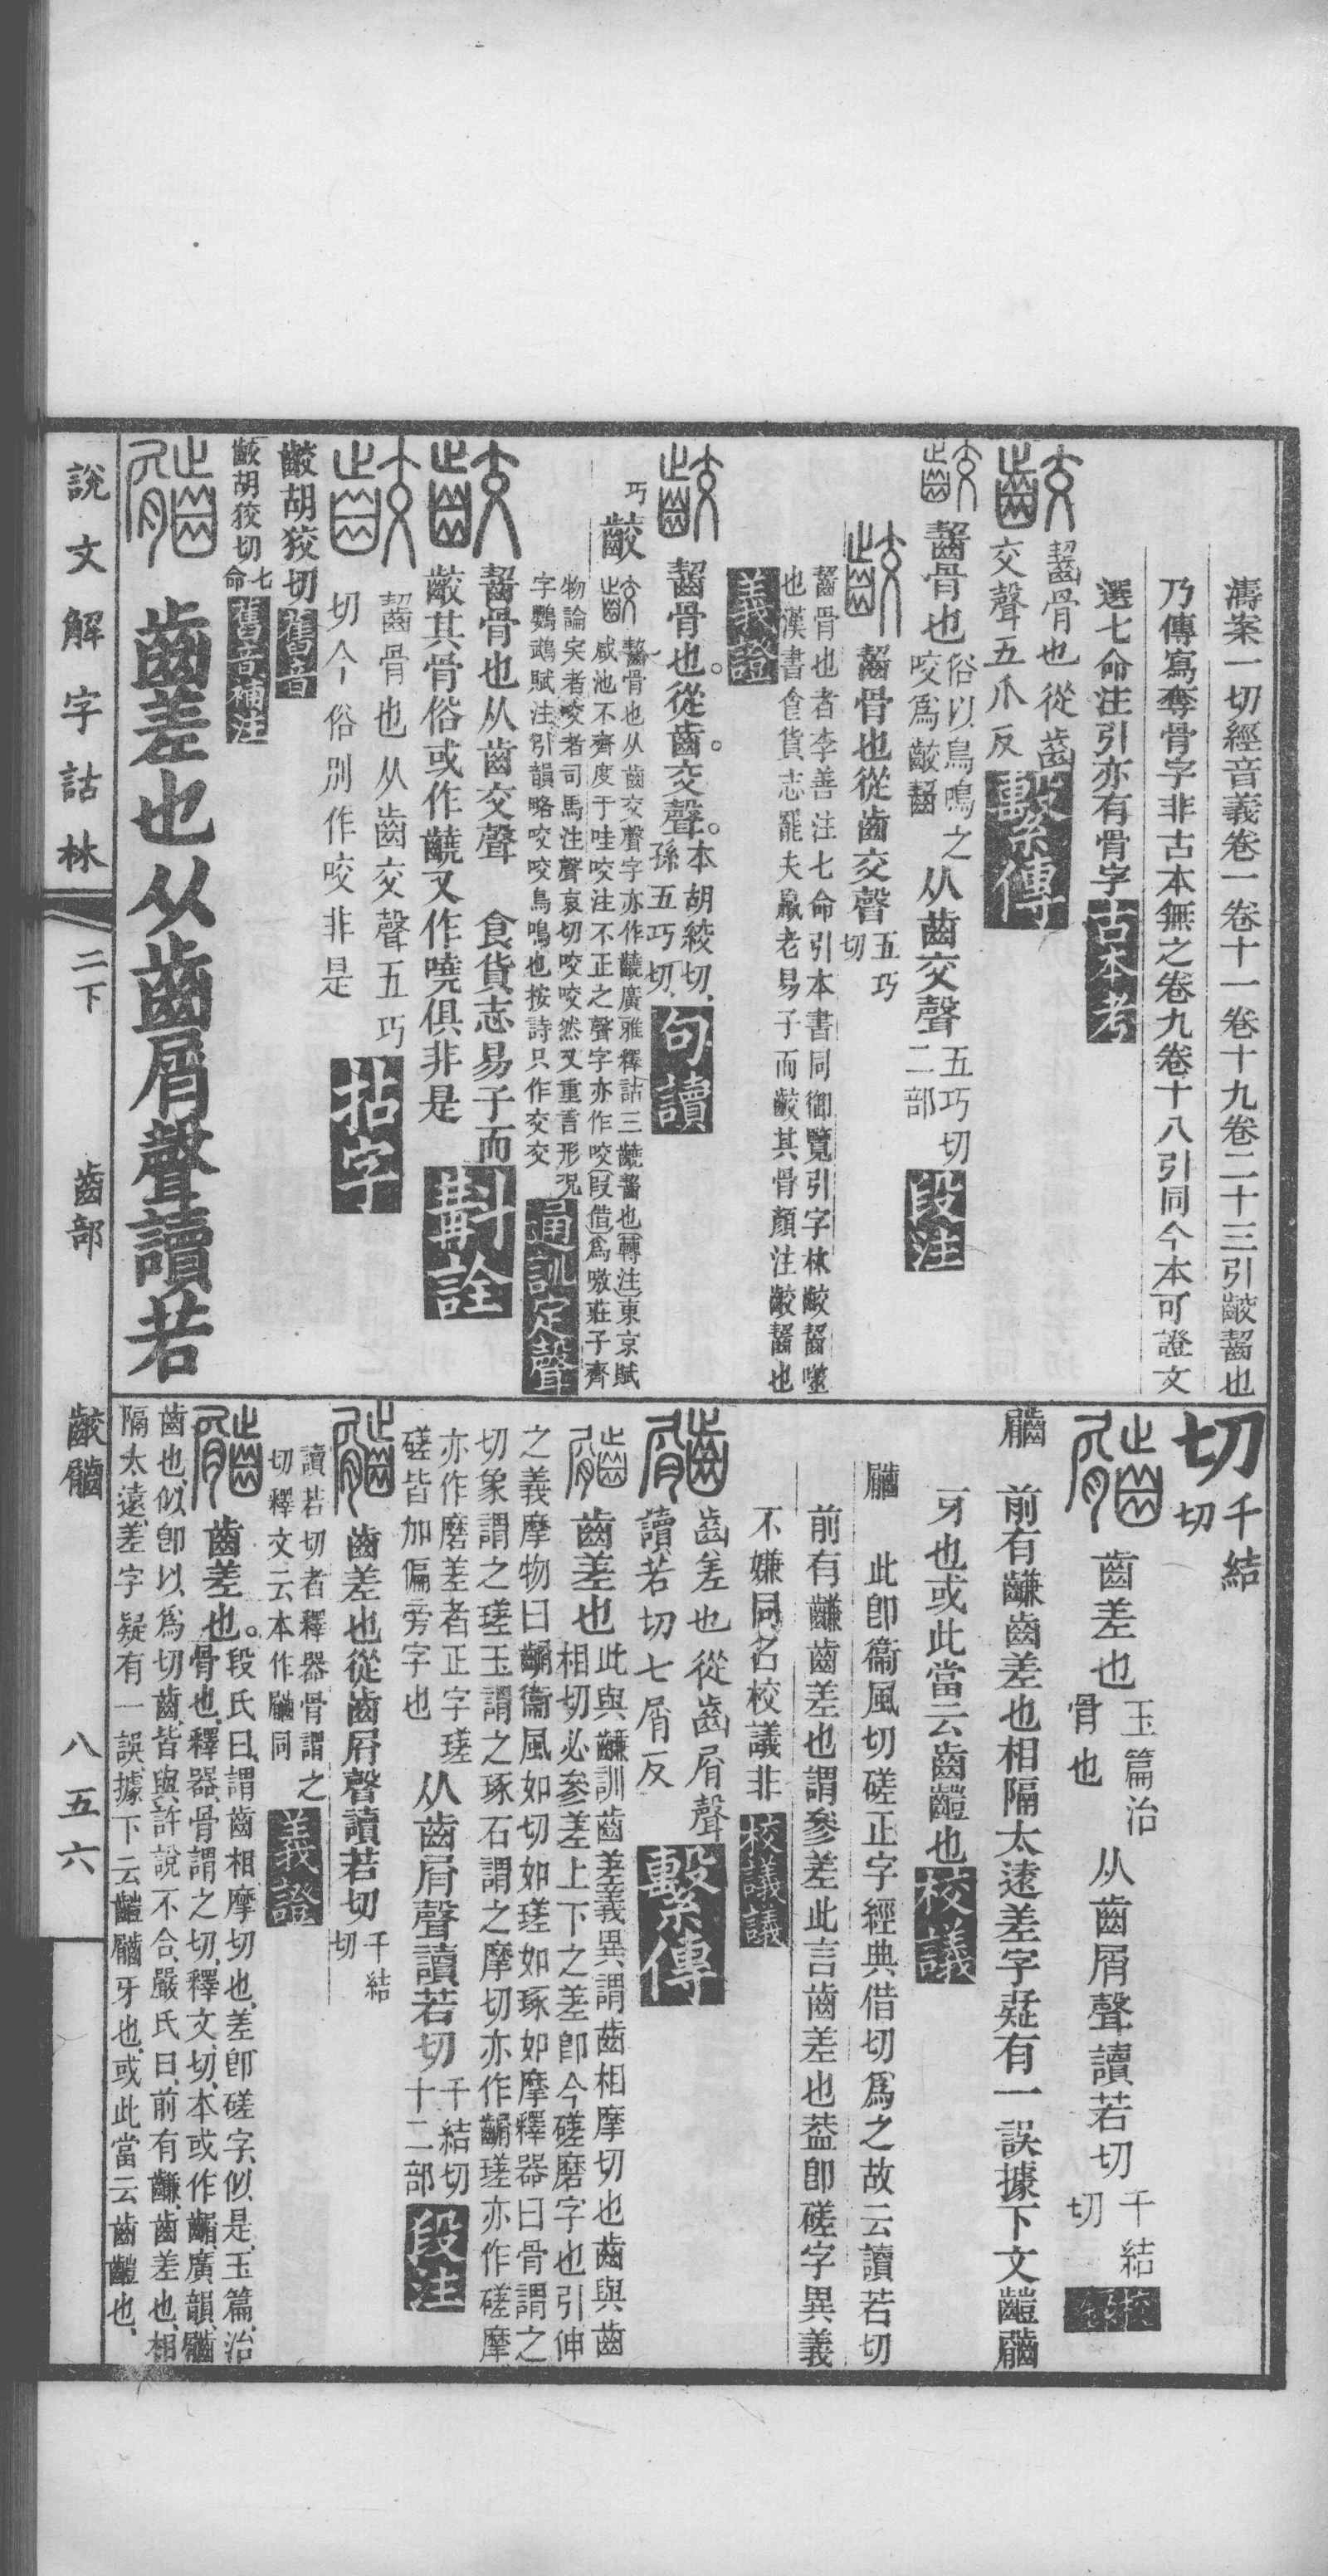 濤案一切經音義卷一卷十一卷十九卷二十三引齩齧也
乃傳寫奪骨字非古本無之卷九卷十八引同今本可證文
選七命注引亦有骨字古本考
齩
齧骨也從齒
交聲五爪反
繫傳
齩齧骨也
俗以鳥鳴之
咬爲齩齧
从齒交聲
五巧切
二部
段注
齩齧骨也從齒交聲
五巧
切
齧骨也者李善注七命引本書同御覽引字林齩齧噬
也漢書食貨志罷夫羸老易子而齩其骨顏注齩齧也
義證
齩齧骨也。從齒。交聲。
本胡絞切、
孫五巧切、
句讀
巧
齩
齩齧骨也从齒交聲字亦作齾廣雅釋詁三齾齧也(轉注)東京賦
咸池不齊度于哇咬注不正之聲字亦作咬(叚借)爲嗷莊子齊
物論宎者咬者司馬注聲哀切咬咬然又重言形況
字鸚鵡賦注引韻略咬咬鳥鳴也按詩只作交交
通訓定聲
齩齧骨也从齒交聲 食貨志易子而
齩其骨俗或作䶧又作嘵俱非是
斠詮
齩
齧骨也从齒交聲五巧
切今俗別作咬非是
拈字
齩胡狡切舊音
齩胡狡切
七
命
舊音補注
䶝齒差也从齒屑聲讀若
說文解字詁林
二下
齒部
齩䶝
八五六
切
千結
切
䶝齒差也
玉篇治
骨也
从齒屑聲讀若切
千結
切
校錄
䶝 前有䶢齒差也相隔太遠差字疑有一誤據下文齸䶝
牙也或此當云齒齸也校議
䶝 此卽衞風切磋正字經典借切爲之故云讀若切
前有䶢齒差也謂參差此言齒差也葢卽磋字異義
不嫌同名校議非校議議
䶝
齒差也從齒屑聲
讀若切七屑反
繫傳
䶝齒差也
此與䶢訓齒差義異謂齒相摩切也齒與齒
相切必參差上下之差卽今磋磨字也引伸
之義摩物曰䶝衞風如切如瑳如琢如摩釋器曰骨謂之
切象謂之瑳玉謂之琢石謂之摩切亦作䶝瑳亦作磋摩
亦作磨差者正字瑳
磋皆加偏旁字也
从齒屑聲讀若切
千結切
十二部
段注
䶝齒差也從齒屑聲讀若切
千結
切
讀若切者釋器骨謂之
切釋文云本作䶝同
義證
䶝齒差也。
段氏曰、謂齒相摩切也、差卽磋字、似是、玉篇、治
骨也、釋器、骨謂之切、釋文、切、本或作䶝、廣韻、䶝
齒也、似卽以爲切齒、皆與許說不合、嚴氏曰、前有䶢、齒差也、相
隔太遠、差字疑有一誤、據下云齸䶝牙也、或此當云齒齸也、